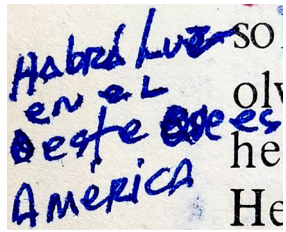 Habrá luz
en el
Oeste que es
América
so
olv
he
He